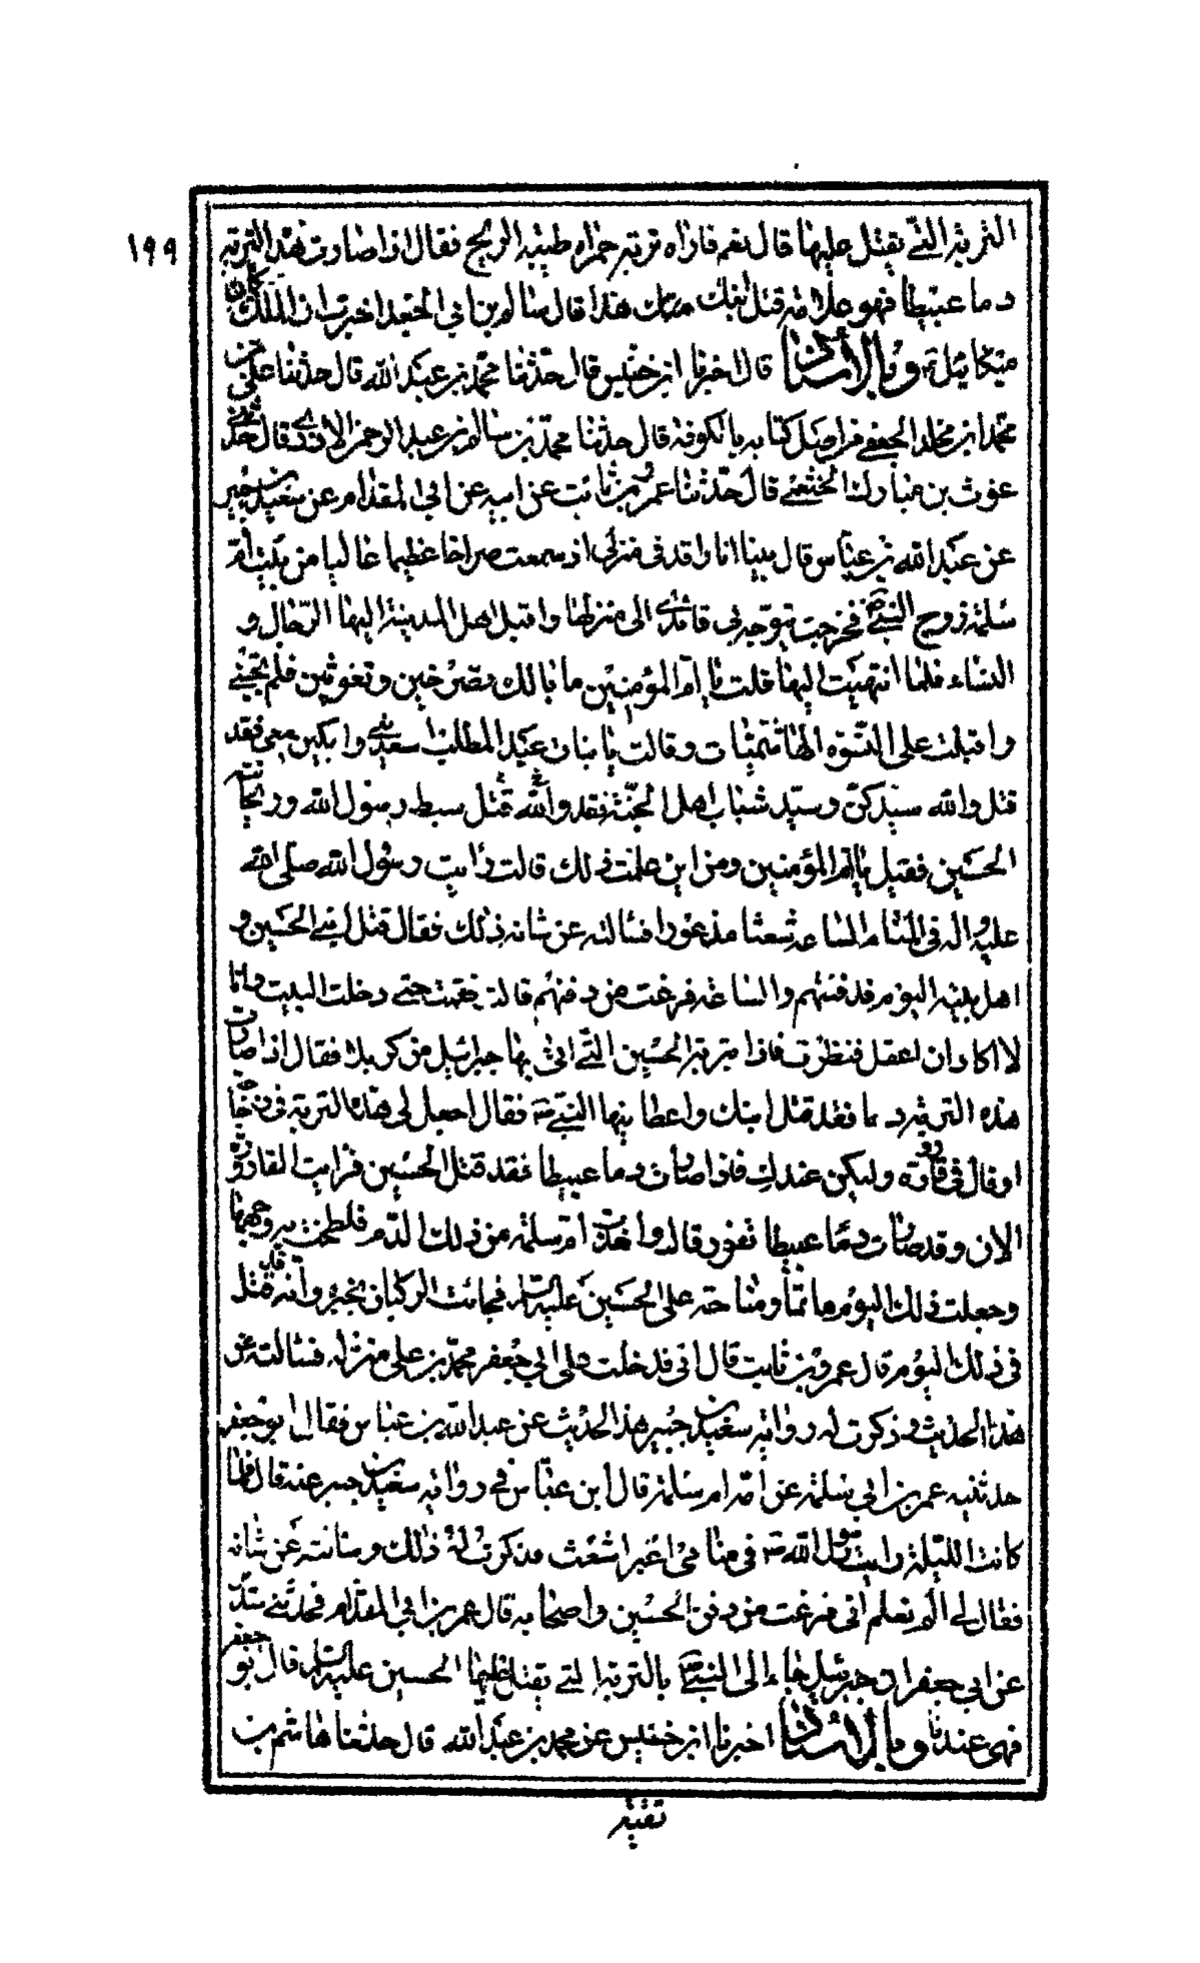 ١٩٩
التربة التي يقتل عليها قال نعم فاراه تربة حمراء طيبة الريح فقال اذا صارت هذه التربة
دما عبيطا فهو علامة قتل ابنك هذا قال سالم بن ابي الجعد اخبرت ان الملك كان
ميكائيل وبالاسناد قال اخبرنا ابن خنيس قال حدثنا محمد بن عبد الله قال حدثنا علي بن
محمد بن مخلد الجعفي من اصل كتابه بالكوفة قال حدثنا محمد بن سالم بن عبد الرحمن الازدي قال حدثني
غوث بن مبارك الخثعمي قال حدثنا عمرو بن ثابت عن ابيه عن ابي المقدام عن سعيد بن جبير
عن عبد الله بن عباس قال بينا انا راقد في منزلي اذ سمعت صراخا عظيما عاليا من بيت ام
سلمة زوج النبي ص فخرجت يتوجه بي قائدي الى منزلها واقبل اهل المدينة اليها الرجال و
النساء فلما انتهيت اليها قلت يا ام المؤمنين ما بالك تصرخين وتغوثين فلم تجبني
واقبلت على النسوة الهاشميات وقالت يا بنات عبد المطلب اسعديني وابكين معي فقد
قتل والله سيدكن وسيد شباب اهل الجنة فقد والله قتل سبط رسول الله وريحانته
الحسين فقيل يا ام المؤمنين ومن اين علمت ذلك قالت رايت رسول الله صلى الله
عليه واله في المنام الساعة شعثا مذعورا فسالته عن شانه ذلك فقال قتل ابني الحسين و
اهل بيته اليوم فدفنتهم والساعة فرغت من دفنهم قالت فقمت حتى دخلت البيت وانا
لا اكاد ان اعقل فنظرت فاذا بتربة الحسين التي اتى بها جبرائيل من كربلا فقال اذا صارت
هذه التربة دما فقد قتل ابنك واعطانيها النبي ص فقال اجعل لي هذه التربة في زجاجة
او قال في قارورة وليكن عندك فاذا صارت دما عبيطا فقد قتل الحسين فرايت القارورة
الان وقد صارت دما عبيطا تفور قال واخذت ام سلمة من ذلك الدم فلطخت به وجهها
وجعلت ذلك اليوم ماتما ومناحة على الحسين عليه السلم فجائت الركبان بخبره وانه قد قتل
في ذلك اليوم قال عمرو بن ثابت قال اني فدخلت على ابي جعفر محمد بن علي منزله فسالته عن
هذا الحديث وذكرت له رواية سعيد بن جبير هذا الحديث عن عبد الله بن عباس فقال ابو جعفر
حدثنيه عمر بن ابي سلمة عن امه ام سلمة قال ابن عباس في رواية سعيد بن جبير عنه قال فلما
كانت الليلة رايت رسول الله ص في منامي اغبر اشعث فذكرت له ذلك وسالته عن شانه
فقال لي الم تعلم اني فرغت من دفن الحسين واصحابه قال عمر بن ابي المقدام فحدثني سدير
عن ابي جعفر ان جبرئيل جاء الى النبي ص بالتربة التي يقتل عليها الحسين عليه السلم قال ابو جعفر
فهي عندنا وبالاسناد اخبرنا ابن خنيس عن محمد بن عبد الله قال حدثنا هاشم بن
نقية